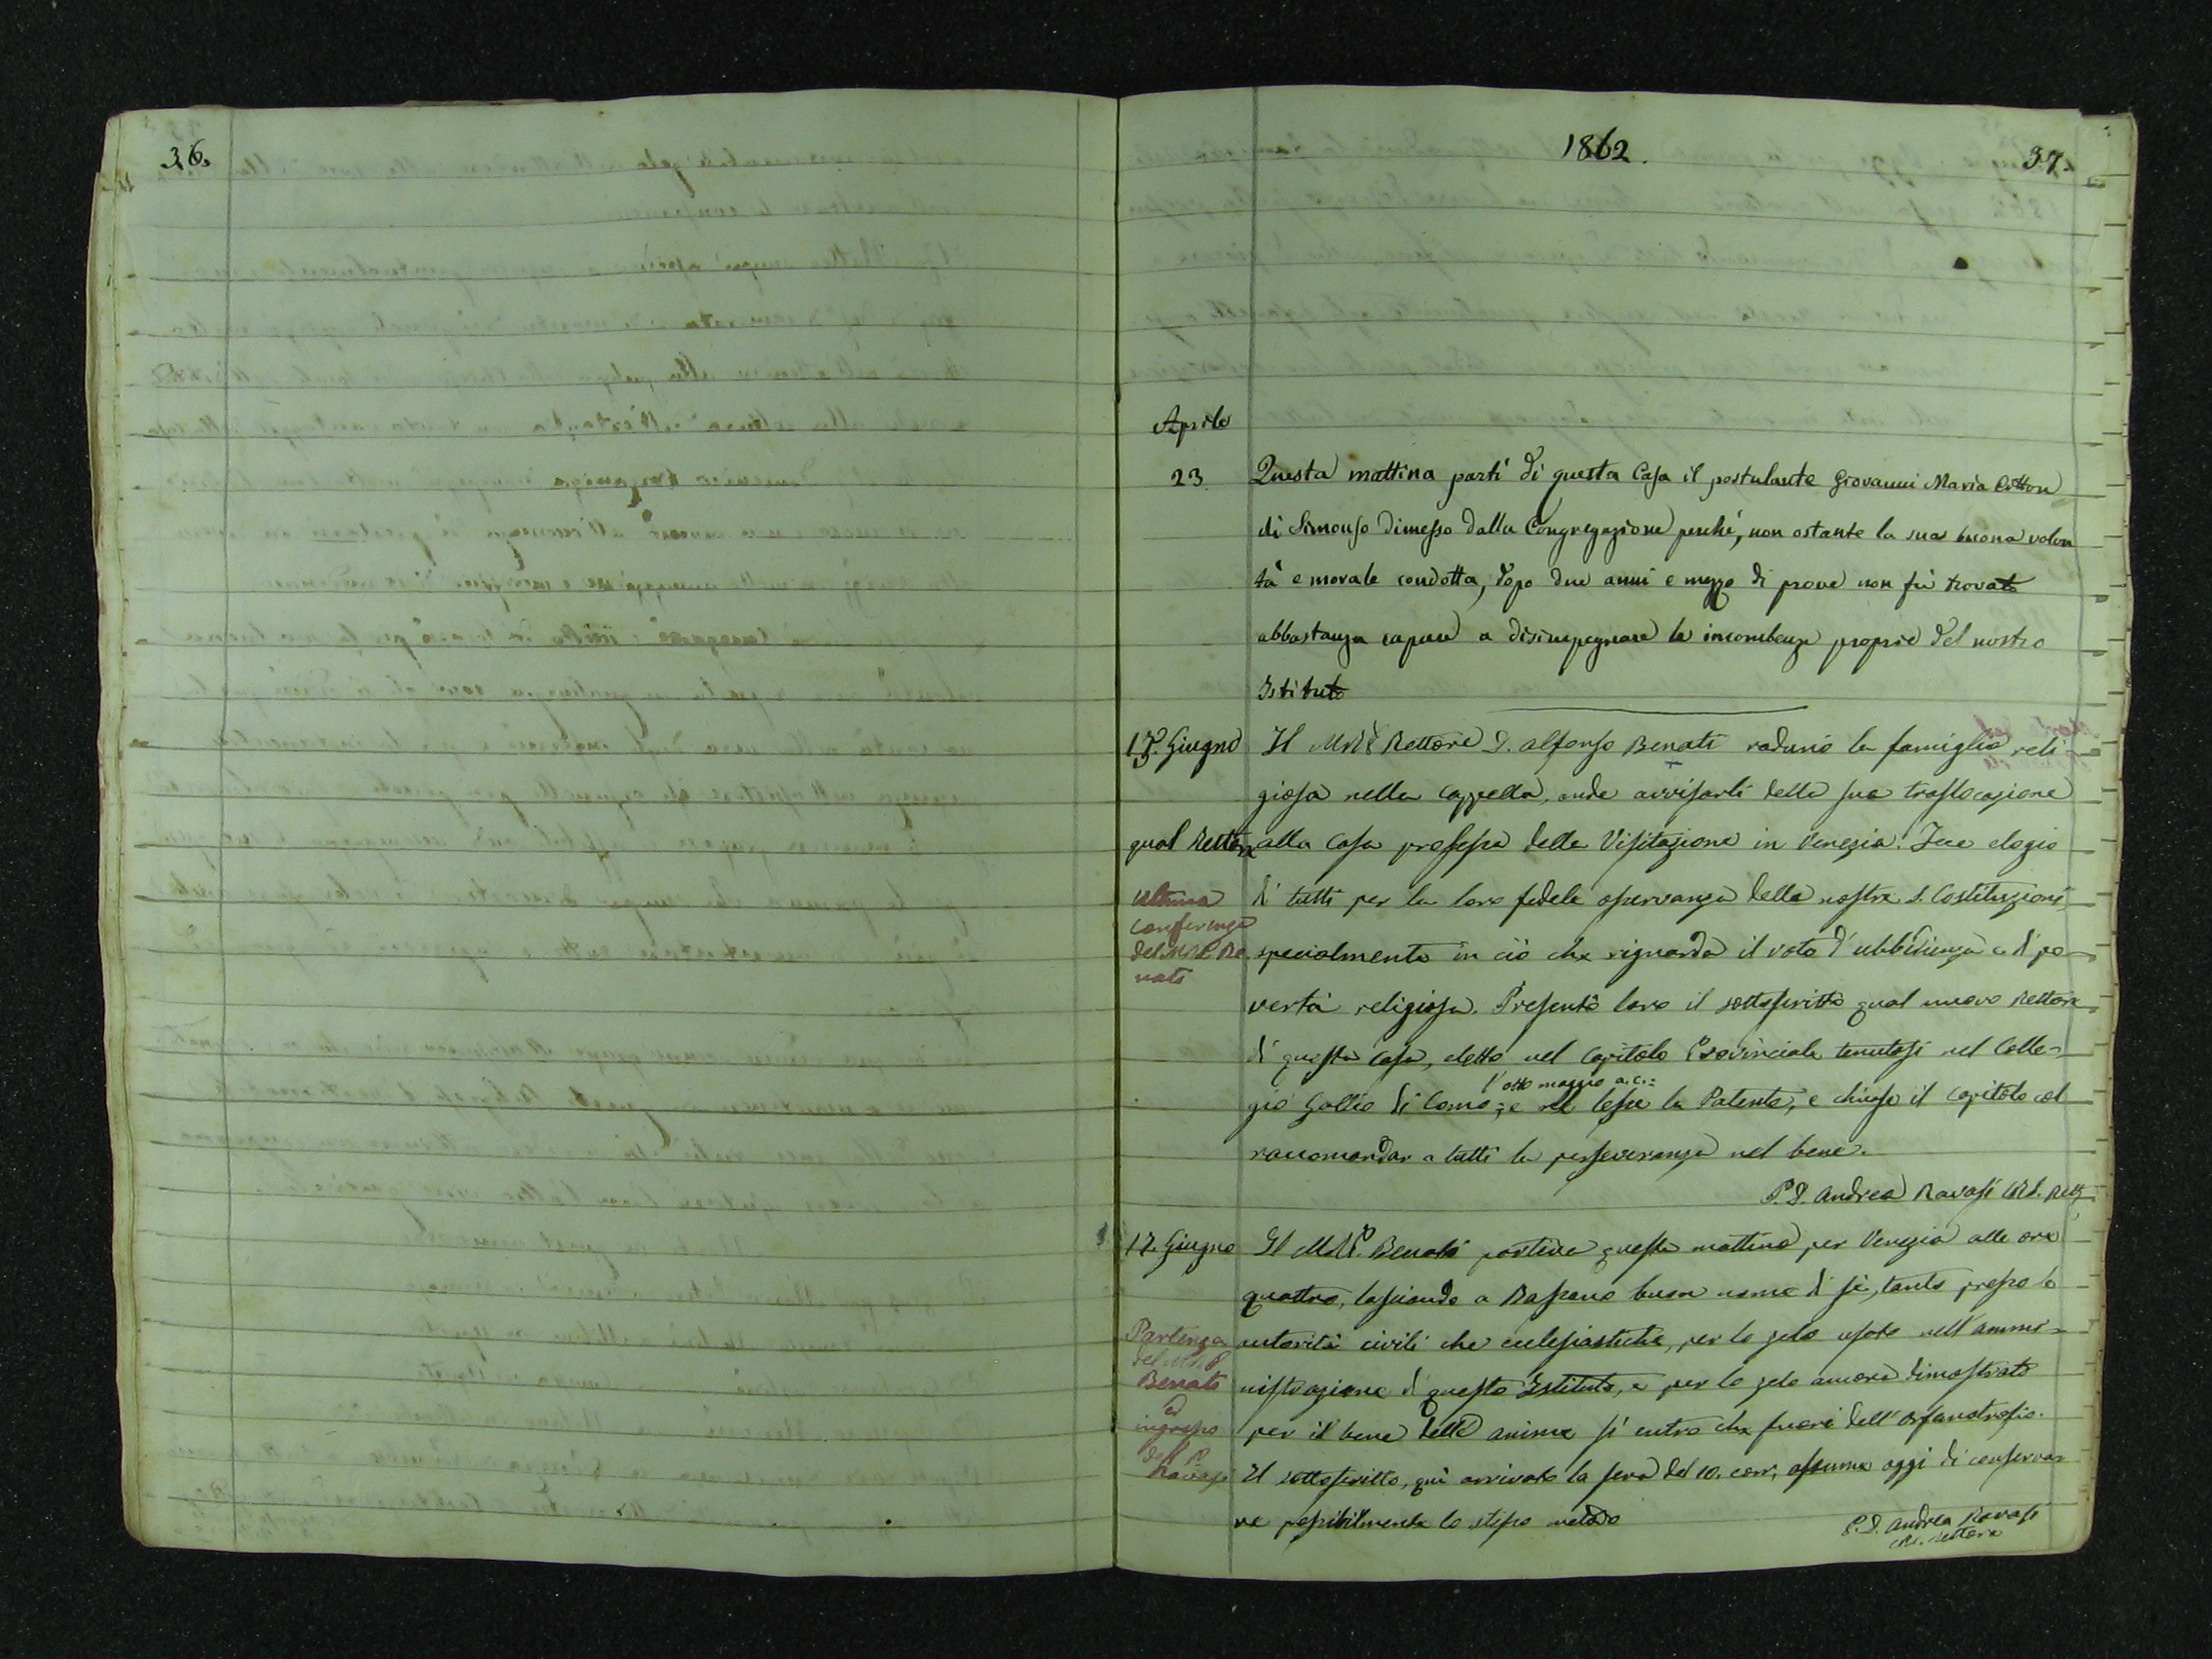 36.
1862.
37.
Aprile
23 Questa mattina partì di questa Casa il postulante Giovanni Maria Cotton
di Simonso dimesso dalla Congregazione perchè, non ostante la sua buona volon
tà e morale condotta, dopo due anni e mezzo di prove non fù trovato
abbastanza capace a disimpegnare le incombenze proprie del nostro
Istituto
13. Giugno Il M.R.P. Rettore D. Alfonso Benati radunò la famiglia reli-
giosa nella Cappella, onde avvisarli della sua traslocazione
qual Rettore alla Casa professa della Visitazione in Venezia. Fece elogio
di tutti per la loro fedele osservanza delle nostre S. Costituzioni,
specialmente in ciò che riguarda il voto d'ubbidienza e di po-
vertà religiosa. Presentò loro il sottoscritto qual nuovo Rettore
di questa Casa, eletto nel Capitolo Provinciale tenutosi nel Colle-
l'otto maggio a.c.:
gio Gallio di Como; e lesse la Patente, e chiuse il Capitolo col
raccomandar a tutti la perseveranza nel bene.
P. D. Andrea Ravasi CRS. Rett.
Ultima
conferenza
del M.R.P. Be
nati
17. Giugno Il M.R.P. Benati partiva questa mattina per Venezia alle ore
quattro, lasciando a Bassano buon nome di sè, tanto presso le
autorità civili che ecclesiastiche, per lo zelo usato nell'ammi-
nistrazione di questo Istituto, e per lo zelo ancora dimostrato
per il bene delle anime sì entro che fuori dell'Orfanotrofio.
Il sottoscritto, quì arrivato la sera del 10. corr, assume oggi di conserva-
re possibilmente lo stesso metodo
P. D. Andrea Ravasi
CRS. Rettore
Partenza
del M.R.P.
Benati
ed
ingresso
del P.
Ravasi